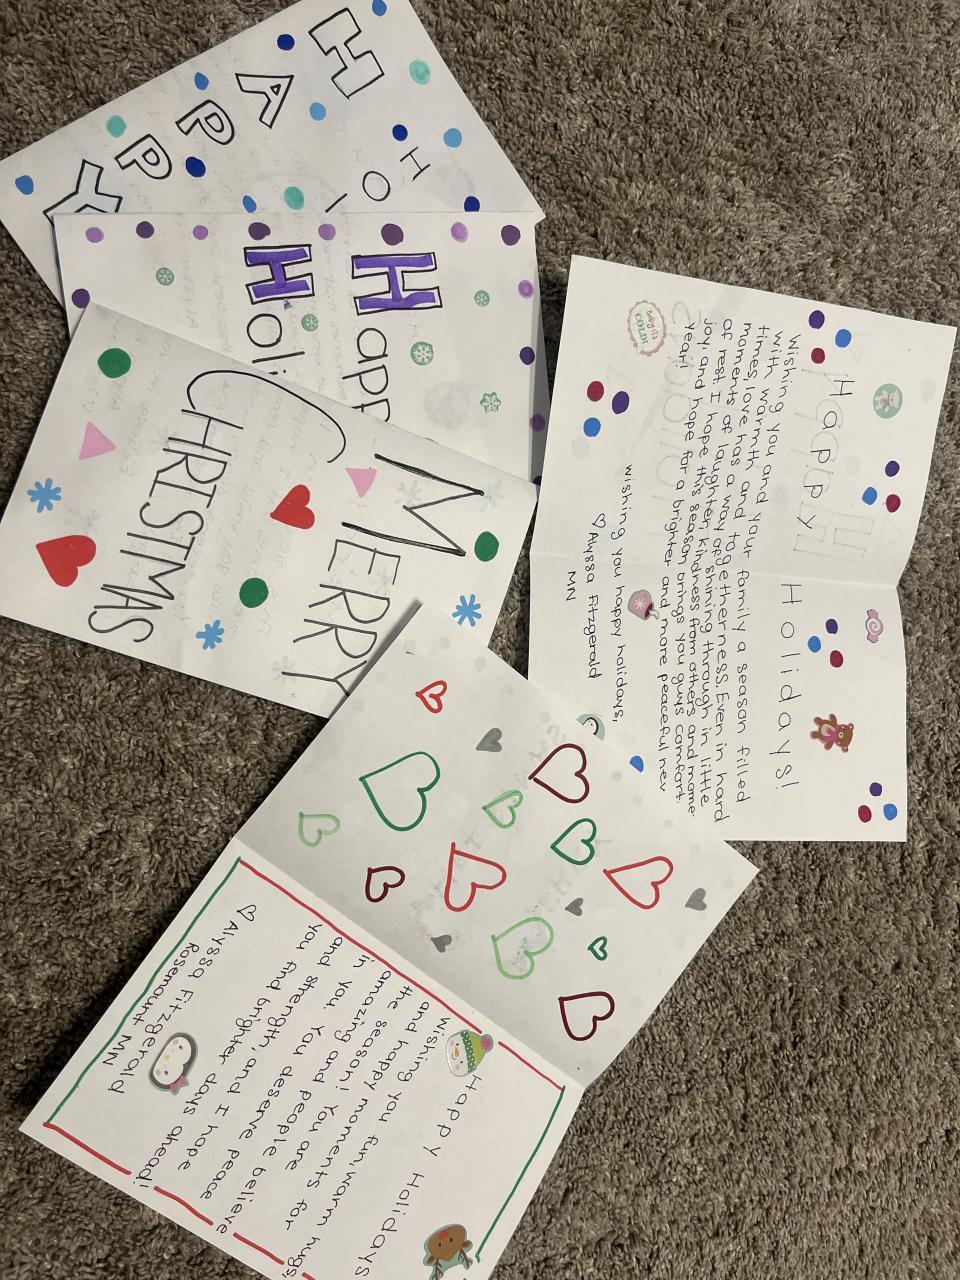 HAPPY
HO
Happ
Holi
MERRY
CHRISTMAS
Happy Holidays!
Wishing you and your family a season filled
with warmth and togetherness. Even in hard
times, love has a way of shining through in little
moments of laughter, kindness from others and mome
of rest. I hope this season brings you guys comfort,
joy, and hope for a brighter and more peaceful new
year!
wishing you happy holidays,
♡ Alyssa Fitzgerald
MN
Baby it's
COLD!
Happy Holidays
Wishing you fun, warm hugs,
and happy moments for
the season! You are
amazing and people believe
in you. You deserve peace
and strength, and I hope
you find brighter days ahead!
♡ Alyssa Fitzgerald
Rosemount MN